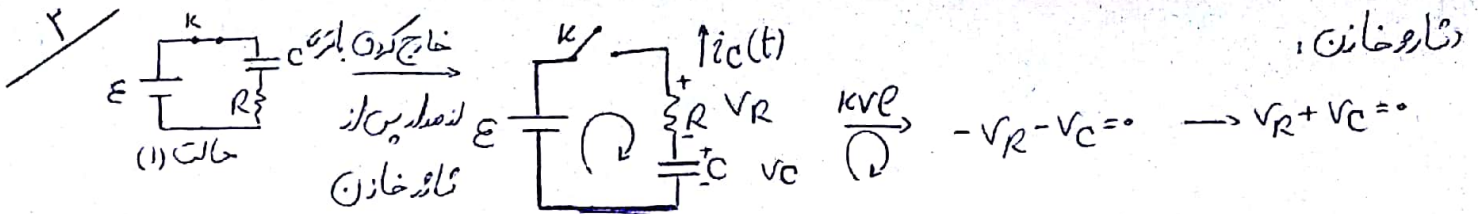 ۲
دشارژ خازن:
K
ε C R
حالت (۱)
خارج کردن باتری
از مدار پس از
شارژ خازن
K ↑ic(t)
ε + R VR -
+ C VC -
KVL → -VR-VC=0 → VR+VC=0